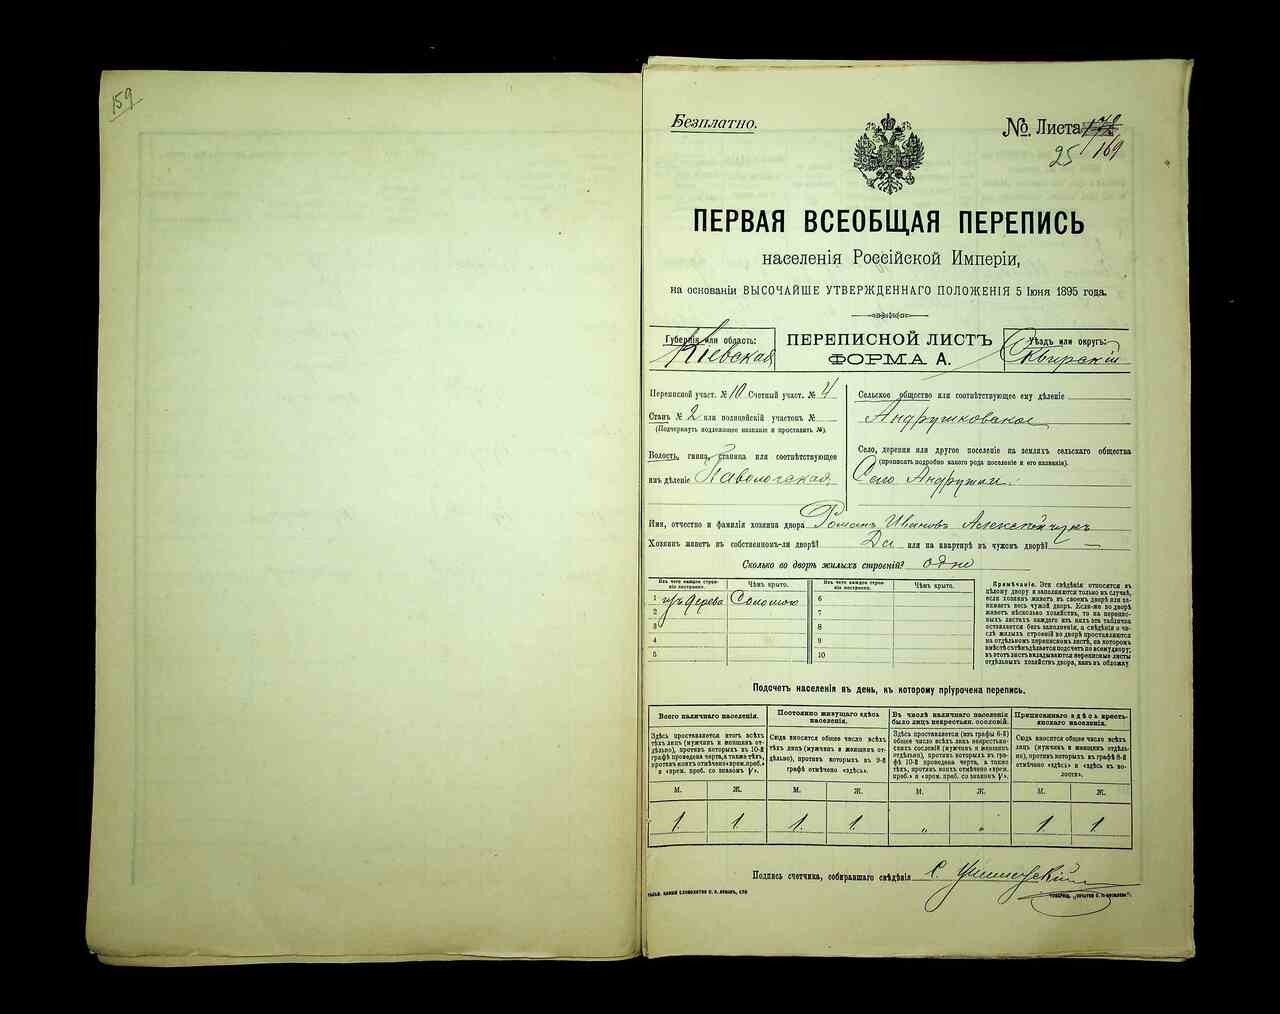 159
Безплатно.
№ Листа
25 169
ПЕРВАЯ ВСЕОБЩАЯ ПЕРЕПИСЬ
населенія Россійской Имперіи,
на основаніи ВЫСОЧАЙШЕ УТВЕРЖДЕННАГО ПОЛОЖЕНІЯ 5 Іюня 1895 года.
Губернія или область: Кіевская
ПЕРЕПИСНОЙ ЛИСТЪ
ФОРМА А.
Уѣздъ или округъ: Сквирскій
Переписной участ. № 10 Счетный участ. № 4
Станъ № 2 или полицейскій участокъ №
(Подчеркнуть подлежащее названіе и проставить №).
Волость, гмина, станица или соотвѣтствующее
имъ дѣленіе Паволочская
Сельское общество или соотвѣтствующее ему дѣленіе
Андрушковское
Село, деревня или другое поселеніе на земляхъ сельскаго общества
(прописать подробно какого рода поселеніе и его названіе).
Село Андрушки.
Имя, отчество и фамилія хозяина двора Романъ Ивановъ Алексѣйчукъ
Хозяинъ живетъ въ собственномъ-ли дворѣ? Да или на квартирѣ въ чужомъ дворѣ? —
Сколько во дворѣ жилыхъ строеній? одно
Изъ чего каждое строеніе построено. Чѣмъ крыто. Изъ чего каждое строеніе построено. Чѣмъ крыто.
1 изъ дерева Соломою 6
2 7
3 8
4 9
5 10
Примѣчаніе. Эти свѣдѣнія относятся къ
цѣлому двору и заполняются только въ случаѣ,
если хозяинъ живетъ въ своемъ дворѣ или занимаетъ
весь чужой дворъ. Если-же во дворѣ
живетъ нѣсколько хозяйствъ, то на переписныхъ
листахъ каждаго изъ нихъ эта табличка
оставляется безъ заполненія, а свѣдѣнія о числѣ
жилыхъ строеній во дворѣ проставляются
на отдѣльномъ переписномъ листѣ, на которомъ
вмѣстѣ съ тѣмъ дѣлается подсчетъ по всему двору;
въ этотъ листъ вкладываются переписные листы
отдѣльныхъ хозяйствъ двора, какъ въ обложку.
Подсчетъ населенія въ день, къ которому пріурочена перепись.
Всего наличнаго населенія.
Здѣсь проставляется итогъ всѣхъ
тѣхъ лицъ (мужчинъ и женщинъ отдѣльно),
противъ которыхъ въ 10-й
графѣ проведена черта, а также тѣхъ,
противъ коихъ отмѣчено «врем. преб.»
и «врем. преб. со знакомъ V».
Постоянно живущаго здѣсь населенія.
Сюда вносится общее число всѣхъ
тѣхъ лицъ (мужчинъ и женщинъ отдѣльно),
противъ которыхъ въ 9-й
графѣ отмѣчено «здѣсь».
Въ числѣ наличнаго населенія было лицъ некрестьян. сословій.
Здѣсь проставляется (въ графы 6-й)
общее число всѣхъ лицъ некрестьянскихъ
сословій (мужчинъ и женщинъ
отдѣльно), противъ которыхъ въ графѣ
10-й проведена черта, а также
тѣхъ, противъ коихъ отмѣчено «врем.
преб.» и «врем. преб. со знакомъ V».
Приписаннаго здѣсь крестьянскаго населенія.
Сюда вносится общее число всѣхъ
лицъ (мужчинъ и женщинъ отдѣльно),
противъ которыхъ въ графѣ 8-й
отмѣчено «здѣсь» и «здѣсь въ волости».
М. Ж. М. Ж. М. Ж. М. Ж.
1. 1. 1. 1. „ „ 1 1
Подпись счетчика, собиравшаго свѣдѣнія С.